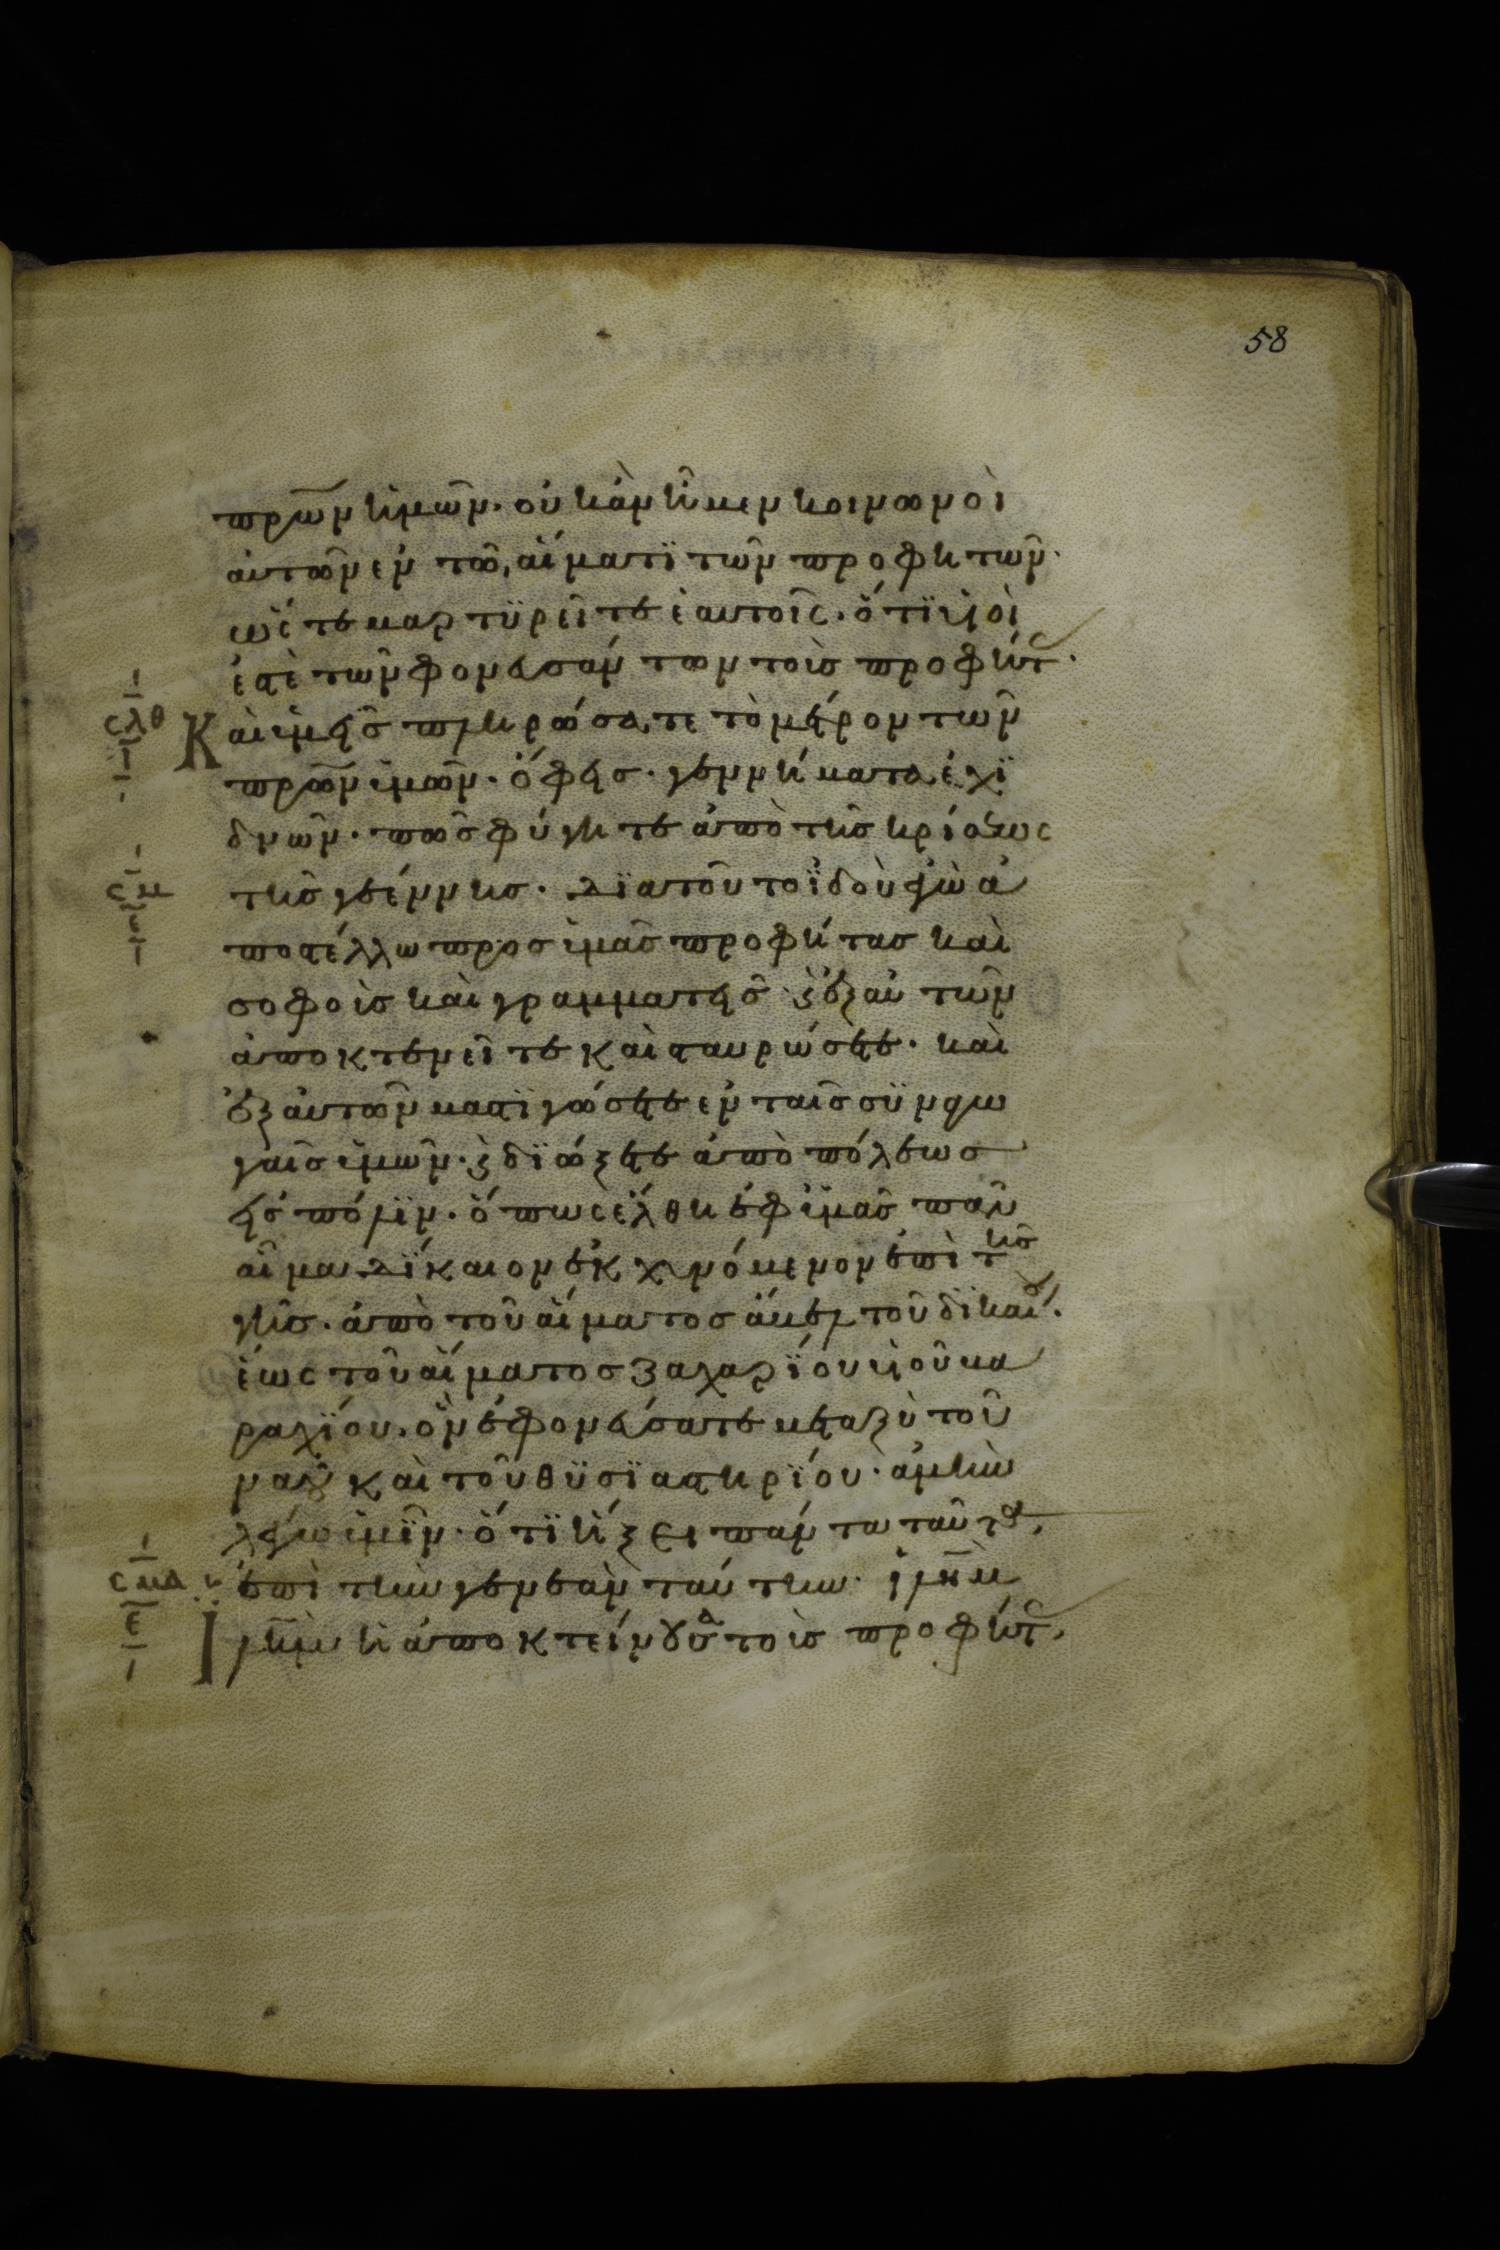 58
πρω̅ν ἡμῶν· οὐκ ἀν ἦμεν κοινωνοὶ
ἀυτῶν ἐν τῶ, αἵματϊ τῶν προφητῶν·
ὥστε μαρτϋρεῖτε ἑαυτοῖς· ὅτϊ υἱοὶ
ἐστὲ τῶν φονευσάντων τοὺσ προφήτ·
σλθ Καὶ ὑμεῖσ πληρώσατε τὸ μέτρον τῶν
ε
πρω̅ν ὑμῶν· ὄφεισ· γεννήματα ἐχϊ
δνῶν· πῶσ φύγητε ἀπὸ τῆσ κρίσεως
σμ τῆσ γεέννησ· Διατοῦτο ἰδοὺ ἐγὼ ἀ
ε
ποστέλλω προσ ὑμᾶσ προφήτασ καὶ
σοφοὺσ καὶ γραμματεῖσ· ϗ ἐξ αὐτῶν
ἀποκτενεῖτε καὶ σταυρώσετε· καὶ
ἐξ ἀυτῶν μαστϊγώσετε ἐν ταῖσ σϋναγω
γαῖσ ὑμῶν· ϗ δϊώξετε ἀπὸ πόλεωσ
εἰσ πόλϊν· ὅπως ἔλθη ἐφ ὑμᾶσ πᾶν
αἷμα Δϊκαιον ἐκχυνόμενον ἐπὶ τῆσ
γῆσ· ἀπὸ τοῦ αἵματοσ ἄβελ τοῦ δϊκαίου·
ἕως τοῦ αἵματοσ Ζαχαρϊόυ υἱοῦ βα
ραχϊόυ· ὃν ἐφονεύσατε μεταξὺ τοῦ
ναοῦ καὶ τοῦ θϋσϊαστηρϊόυ· ἀμὴν
λέγω ὑμῖν· ὅτϊ ἥξει πάντα ταῦτα,
σμα ἐπὶ τὴν γενεὰν ταύτην· ϊλη̅μ
ε
Ιλη̅μ ἡ ἀποκτείνουσα τοὺσ προφήτ,